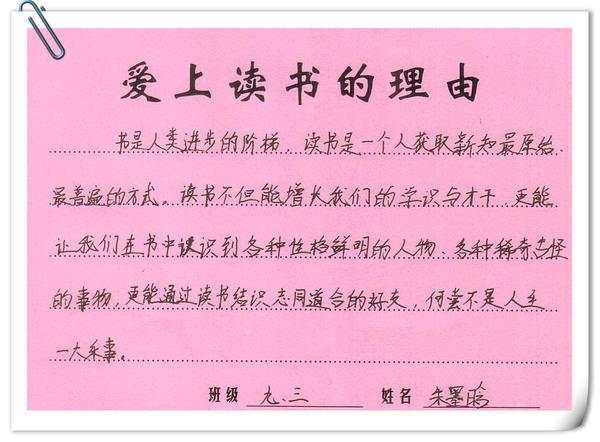 爱上读书的理由
书是人类进步的阶梯。读书是一个人获取新知最原始、
最普遍的方式。读书不但能增长我们的学识与才干,更能
让我们在书中误识到各种性格鲜明的人物、各种稀奇古怪
的事物,更能通过读书结识志同道合的好友,何尝不是人生
一大乐事。
班级 九.三 姓名 朱墨